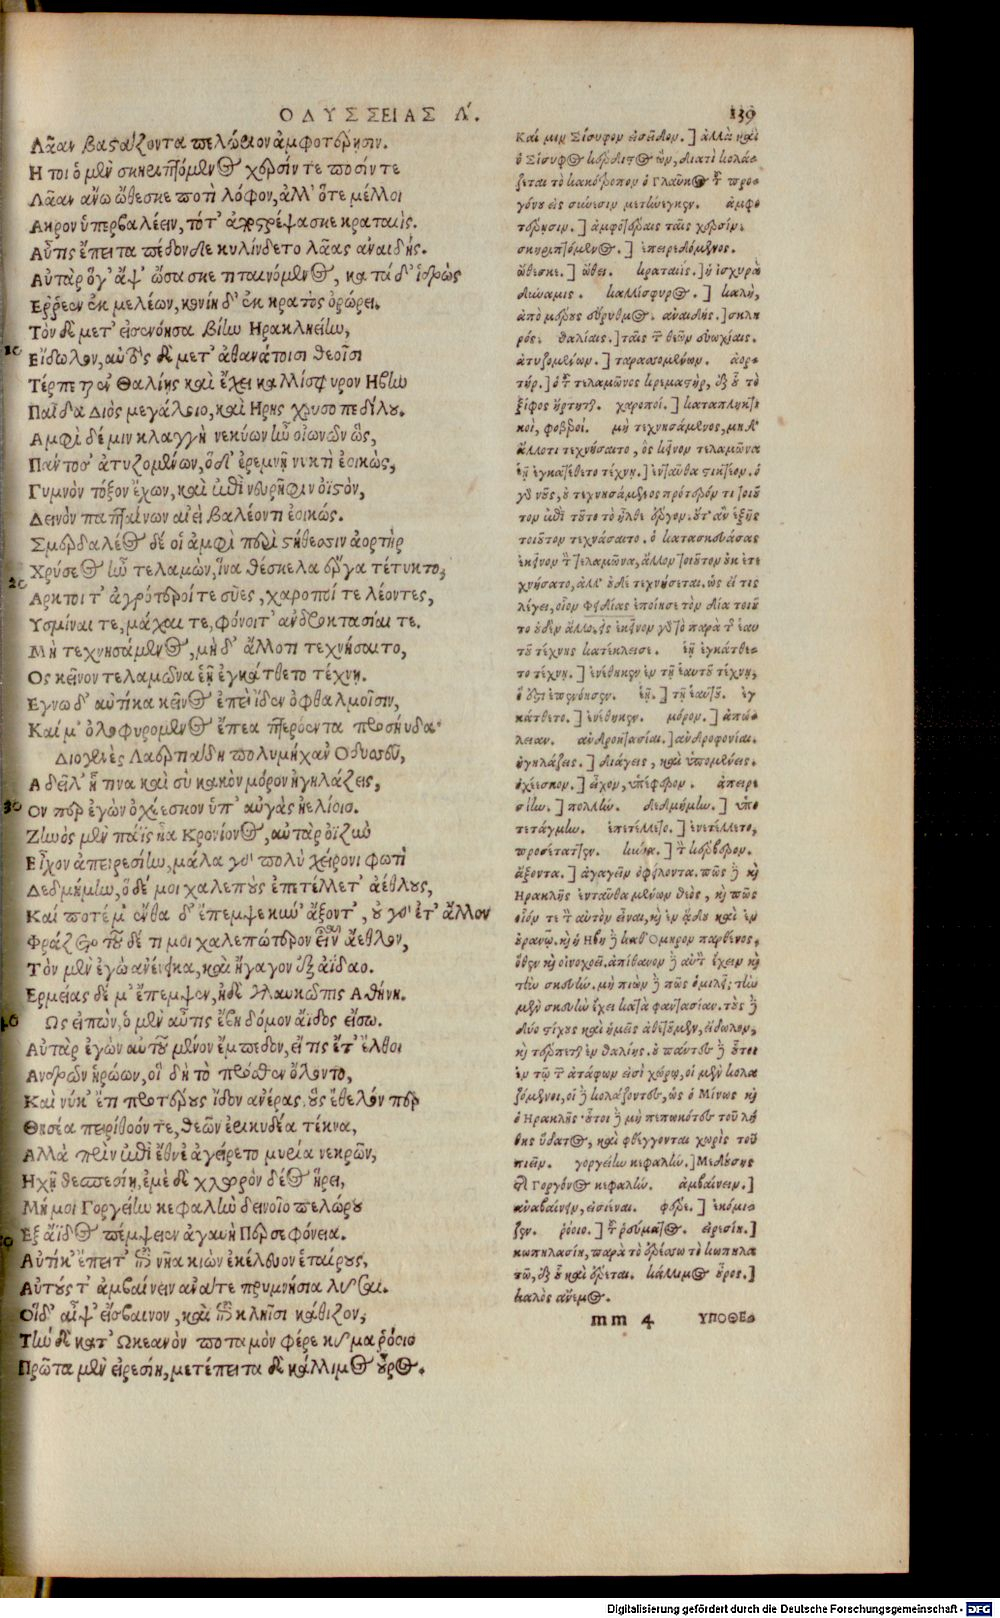 ΟΔΥΣΣΕΙΑΣ Λ. 139
Λᾶαν βαστάζοντα πελώριον ἀμφοτέρῃσιν.
Η τοι ὁ μὲν σκηριπτόμενος χερσίν τε ποσίν τε
Λᾶαν ἄνω ὤθεσκε ποτὶ λόφον, ἀλλ' ὅτε μέλλοι
Ακρον ὑπερβαλέειν, τότ' ἀποστρέψασκε κραταιΐς.
Αὖτις ἔπειτα πέδονδε κυλίνδετο λᾶας ἀναιδής.
Αὐτὰρ ὅγ' ἂψ' ὤσασκε τιταινόμενος, κατὰ δ' ἱδρὼς
Ερρεεν ἐκ μελέων, κονίη δ' ἐκ κρατὸς ὀρώρει.
Τὸν δὲ μετ' εἰσενόησα βίην Ηρακληείην,
10 Εἴδωλον, αὐτὸς δὲ μετ' ἀθανάτοισι θεοῖσι
Τέρπεται ἐν θαλίῃς καὶ ἔχει καλλίσφυρον Ηβην
Παῖδα Διὸς μεγάλοιο, καὶ Ηρης χρυσοπεδίλου.
Αμφὶ δέ μιν κλαγγὴ νεκύων ἦν οἰωνῶν ὣς,
Πάντοσ' ἀτυζομένων, ὅδ' ἐρεμνῇ νυκτὶ ἐοικὼς,
Γυμνὸν τόξον ἔχων, καὶ ἐπὶ νευρῆφιν ὀϊστὸν,
Δεινὸν παπταίνων αἰεὶ βαλέοντι ἐοικώς.
Σμερδαλέος δέ οἱ ἀμφὶ περὶ στήθεσσιν ἀορτὴρ
Χρύσεος ἦν τελαμὼν, ἵνα θέσκελα ἔργα τέτυκτο,
20 Αρκτοι τ' ἀγρότεροί τε σύες, χαροποί τε λέοντες,
Υσμῖναι τε, μάχαι τε, φόνοι τ' ἀνδροκτασίαι τε.
Μὴ τεχνησάμενος, μὴ δ' ἄλλοτι τεχνήσαιτο,
Ος κεῖνον τελαμῶνα ἑῇ ἐγκάτθετο τέχνῃ.
Εγνω δ' αὐτίκα κεῖνος ἐπεὶ ἴδεν ὀφθαλμοῖσιν,
Καί μ' ὀλοφυρομενος ἔπεα πτερόεντα προσηύδα·
Διογενὲς Λαερτιάδη πολυμήχαν' Οδυσσεῦ,
Α δεῖλ' ἦ τινα καὶ σὺ κακὸν μόρον ἡγηλάζεις,
30 Ον περ ἐγὼν ὀχέεσκον ὑπ' αὐγὰς ἠελίοιο.
Ζηνὸς μὲν πάϊς ἦα Κρονίονος, αὐτὰρ ὀϊζὺν
Εἶχον ἀπειρεσίην, μάλα γὰρ πολὺ χείρονι φωτὶ
Δεδμήμην, ὁ δέ μοι χαλεποὺς ἐπετέλλετ' ἀέθλους,
Καί ποτέ μ' ἔνθα δ' ἔπεμψε κύν' ἄξοντ', οὐ γὰρ ἔτ' ἄλλον
Φράζετο τοῦ δέ τί μοι χαλεπώτερον εἶναι ἄεθλον,
Τὸν μὲν ἐγὼ ἀνένεικα, καὶ ἤγαγον ἐξ ἀΐδαο.
Ερμείας δέ μ' ἔπεμψεν, ἠδὲ γλαυκῶπις Αθήνη.
40 Ως εἰπὼν, ὁ μὲν αὖτις ἔβη δόμον ἄϊδος εἴσω.
Αὐτὰρ ἐγὼν αὐτοῦ μένον ἔμπεδον, εἴ τις ἔτ' ἔλθοι
Ανδρῶν ἡρώων, οἳ δὴ τὸ πρόσθεν ὄλοντο,
Καὶ νύ κ' ἔτι προτέρους ἴδον ἀνέρας, οὓς ἔθελόν περ
Θησέα πειρίθοόν τε, θεῶν ἐρικυδέα τέκνα,
Αλλὰ πρὶν ἐπὶ ἔθνε' ἀγείρετο μυρία νεκρῶν,
Ηχῇ θεσπεσίῃ, ἐμὲ δὲ χλωρὸν δέος ᾕρει,
Μή μοι Γοργείην κεφαλὴν δεινοῖο πελώρου
50 Εξ ἄϊδος πέμψειεν ἀγαυὴ Περσεφόνεια.
Αὐτίκ' ἔπειτ' ἐπὶ νῆα κιὼν ἐκέλευον ἑταίρους,
Αὐτούς τ' ἀμβαίνειν ἀνά τε πρυμνήσια λῦσαι.
Οἵδ' αἶψ' εἴσβαινον, καὶ ἐπὶ κληῖσι κάθιζον,
Τὴν δὲ κατ' Ωκεανὸν ποταμὸν φέρε κῦμα ῥόοιο
Πρῶτα μὲν εἰρεσίη, μετέπειτα δὲ κάλλιμος οὖρος.
Καί μιν Σίσυφον εἰσεῖδον.] ἀλλὰ καὶ
ὁ Σίσυφος κέρδιστος ὢν, διατὶ κολά-
ζεται τὸ κακότροπον ὁ Γλαῦκος τοῦ προ-
γόνου εἰς σύνεσιν μετήνεγκεν. ἀμφο
τέρῃσιν.] ἀμφοτέραις ταῖς χερσίν.
σκηριπτόμενος.] ἐπερειδόμενος.
ὤθεσκε.] ὤθει. κραταιΐς.] ἡ ἰσχυρὰ
δύναμις. καλλίσφυρος.] καλὴ,
ἀπὸ μέρους εὔρυθμος. ἀναιδής.] σκλη
ρός. θαλίαις.] ταῖς τῶν θεῶν εὐωχίαις.
ἀτυζομένων.] ταρασσομένων. ἀορ-
τήρ.] ὁ τοῦ τελαμῶνος κρεμαστήρ, ἐξ οὗ τὸ
ξίφος ἤρτηται. χαροποί.] καταπληκτι
κοὶ, φοβεροί. μὴ τεχνησάμενος, μηδ'
ἄλλοτι τεχνήσαιτο, ὃς κεῖνον τελαμῶνα
ἑῇ ἐγκάτθετο τέχνῃ.] ἐνταῦθα στικτέον. ὁ
τοιοῦτον τεχνάσαιτο. ὁ κατασκευάσας
λέγει, οἷον Φειδίας ἐποίησε τὸν Δία τοιοῦ
τοῦ τέχνης κατέκλεισε. ἑῇ ἐγκάτθε-
το τέχνῃ.] ἐνέθηκεν ἐν τῇ ἑαυτοῦ τέχνῃ,
ὅ ἐστι ἐπενόησεν. ἑῇ.] τῇ ἑαυτοῦ. ἐγ
κάτθετο.] ἐνέθηκεν. μόρον.] ἀπώ-
λειαν. ἀνδροκτασίαι.] ἀνδροφονίαι.
ἡγηλάζεις.] διάγεις, καὶ ὑπομένεις.
ὀχέεσκον.] εἶχον, ὑπέφερον. ἀπειρε
σίην.] πολλήν. δεδμήμην.] ὑπο
τετάγμην. ἐπετέλλετο.] ἐνετέλλετο,
προσέταττεν. κύνα.] τὸν κέρβερον.
ἄξοντα.] ἀγαγεῖν ὀφείλοντα. πῶς δὲ καὶ
Ηρακλῆς ἐνταῦθα μένων θεὸς, καὶ πῶς
οἷόν τε τὸν αὐτὸν εἶναι, καὶ ἐν ᾅδου καὶ ἐν
οὐρανῷ. καὶ ἡ Ηβη δὲ καθ' Ομηρον παρθένος,
ὅθεν καὶ οἰνοχοεῖ. ἀπίθανον δὲ αὐτὸν ἔχειν καὶ
τὴν σκευήν. μὴ πιὼν δὲ πῶς ὁμιλεῖ; τὴν
μὲν σκευὴν ἔχει κατὰ φαντασίαν. τοὺς δὲ
δύο στίχους καὶ ἡμεῖς ἀθετοῦμεν, εἴδωλον,
καὶ τέρπεται ἐν θαλίῃς. οὐ πάντες δὲ οὗτοι
ἐν τῷ τῶν ἀτάφων εἰσὶ χώρῳ, οἱ μὲν κολα
ζόμενοι, οἱ δὲ κολάζοντες, ὡς ὁ Μίνως καὶ
ὁ Ηρακλῆς· οὗτοι δὲ μὴ πεπωκότες τοῦ λή
θης ὕδατος, καὶ φθέγγονται χωρὶς τοῦ
πιεῖν. γοργείην κεφαλήν.] Μεδούσης
τῆς Γοργόνος κεφαλήν. ἀμβαίνειν.]
ἀναβαίνειν, εἰσιέναι. φέρε.] ἐκόμι-
ζεν. ῥόοιο.] τοῦ ῥεύματος. εἰρεσίη.]
κωπηλασίη, παρὰ τὸ ἐρέσσω τὸ κωπηλα
τῶ, ἐξ οὗ καὶ ἐρέται. κάλλιμος οὖρος.]
καλὸς ἄνεμος.
mm 4 ΥΠΟΘΕ-
Digitalisierung gefördert durch die Deutsche Forschungsgemeinschaft - DFG